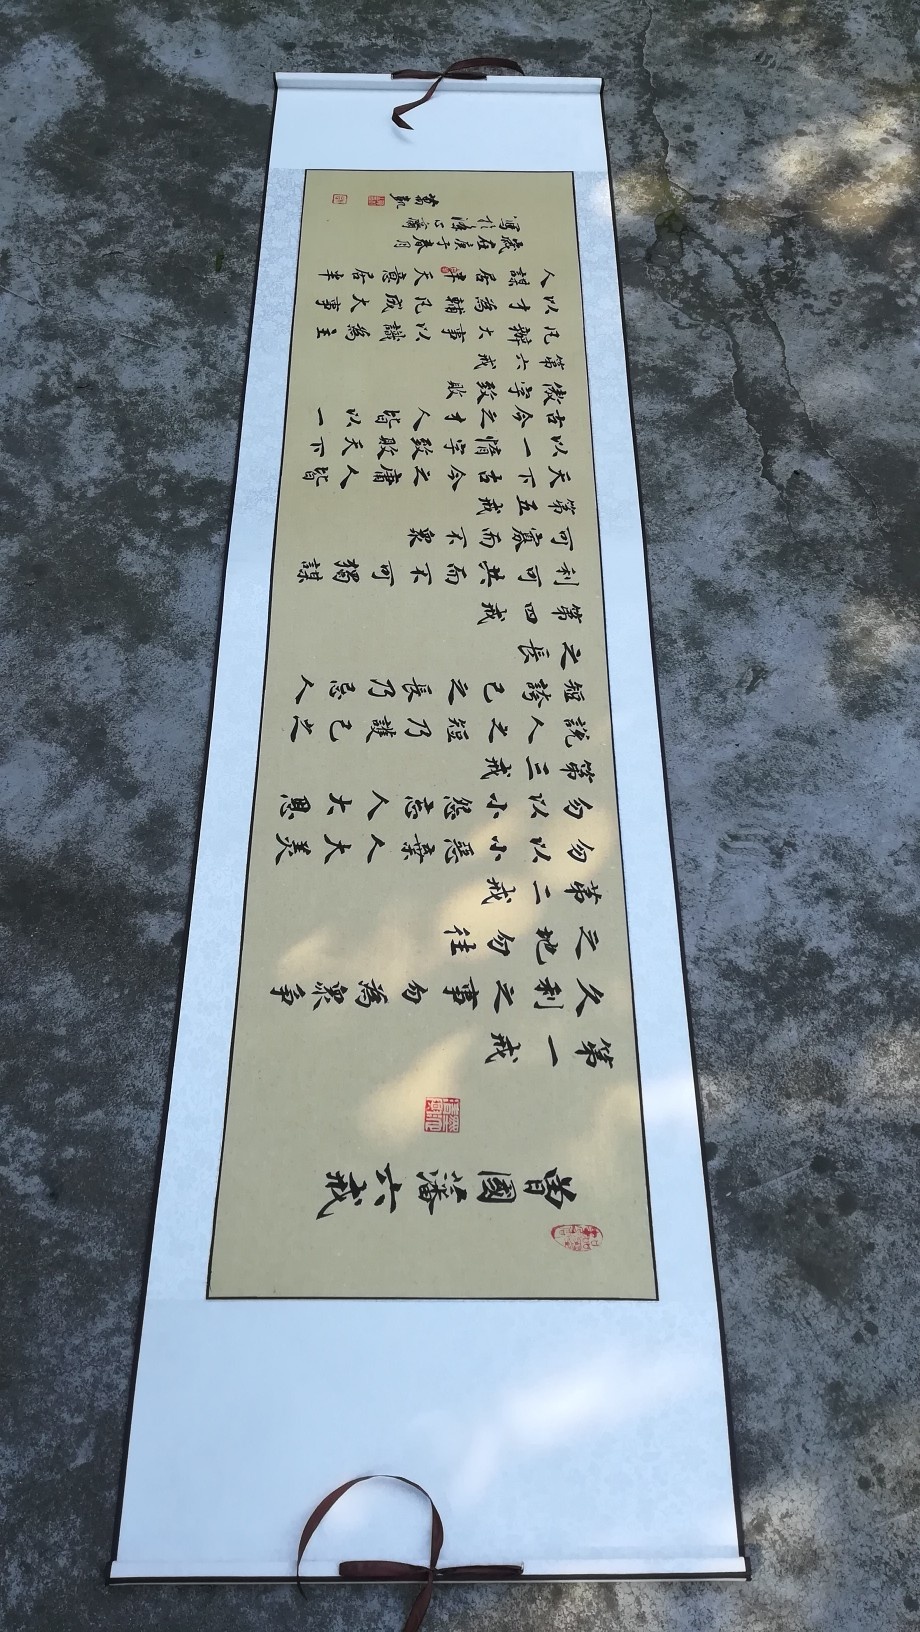 曾國藩六戒
第一戒
久利之事勿為衆爭
之地勿往
第二戒
勿以小惡棄人大美
勿以小怨忘人大恩
第三戒
說人之短乃護己之
短誇己之長乃忌人
之長
第四戒
利可共而不可獨謀
可寡而不衆
第五戒
天下古今之庸人皆
以一惰字致敗天下
古今之才人皆以一
傲字致敗
第六戒
凡辦大事以識為主
以才為輔凡成大事
人謀居半天意居半
歲在庚子春月
寫於心齋